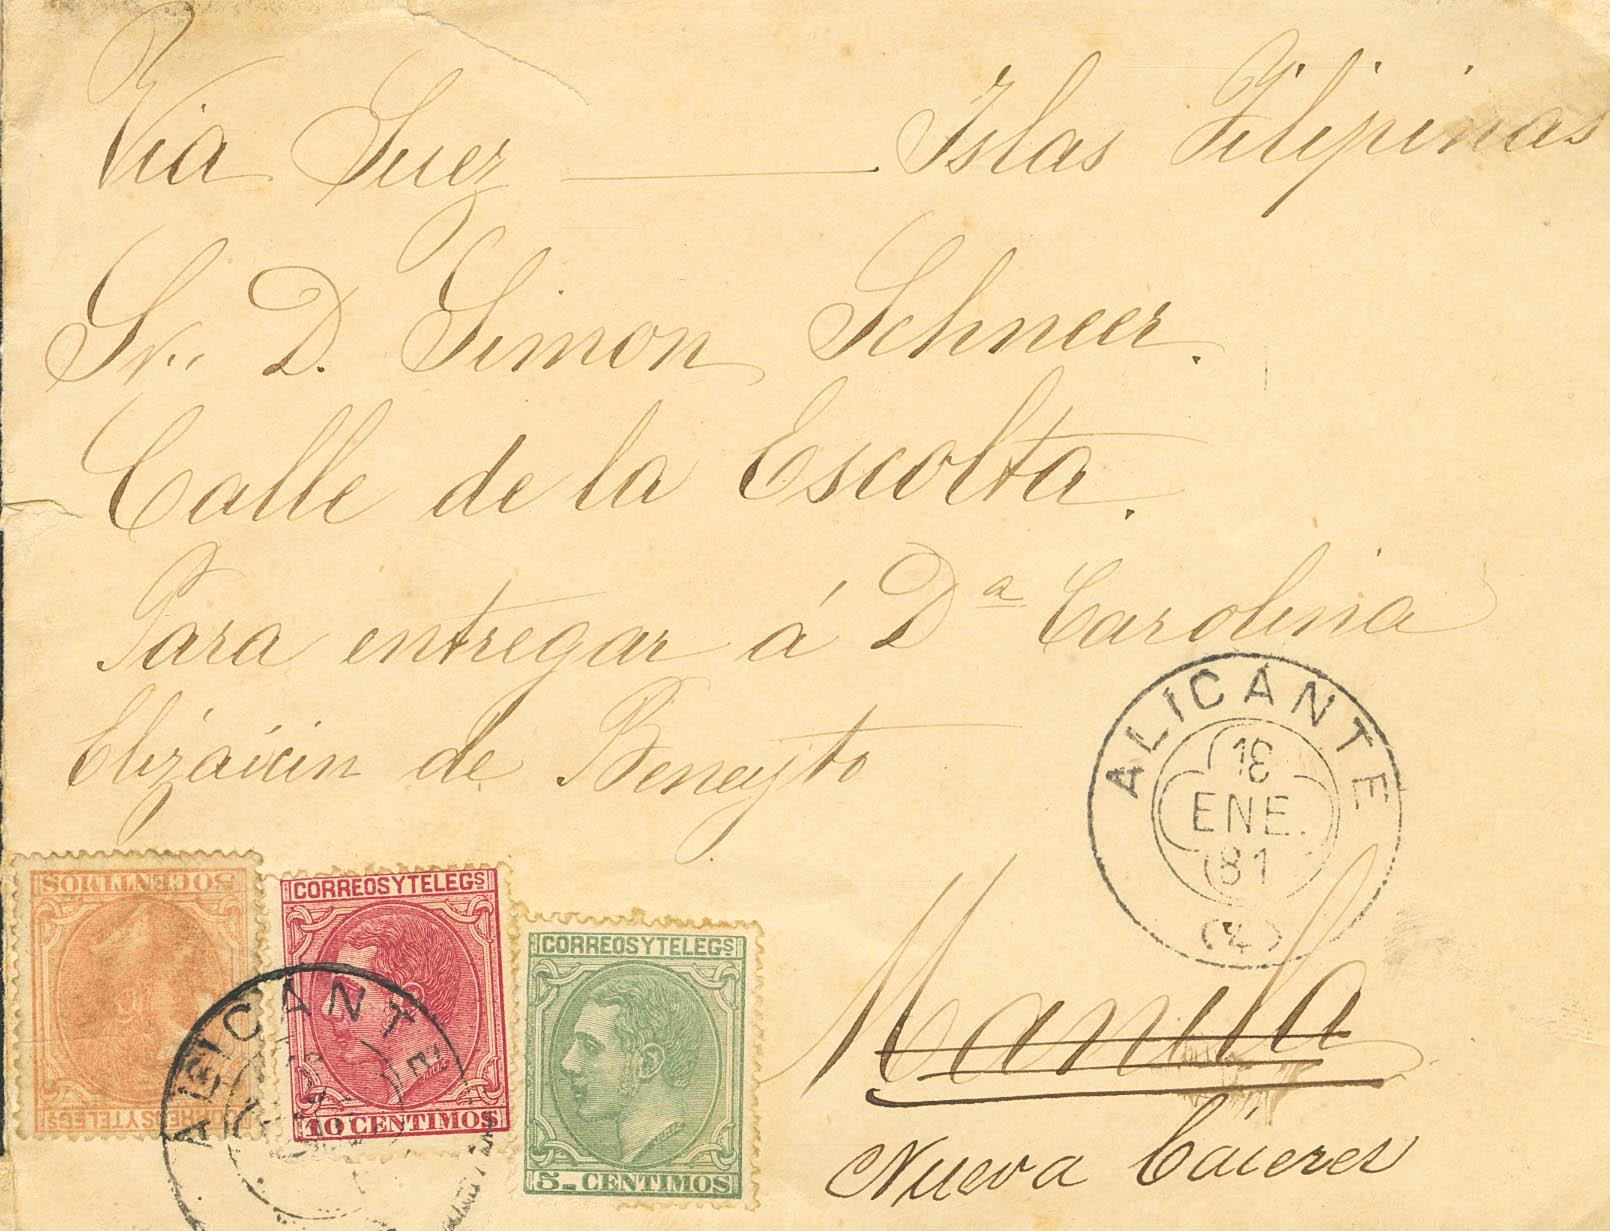 Via Suez ——— Islas Filipinas
Sr. D. Simon Schneer.
Calle de la Escolta.
Para entregar á Dª Carolina
Elizaicin de Beneyto
ALICANTE
18
ENE.
81
(4)
Manila
Nueva Cáceres
50 CENTIMOS
CORREOS Y TELEGS
CORREOS Y TELEGS
10 CENTIMOS
CORREOS Y TELEGS
5 CENTIMOS
ALICANTE